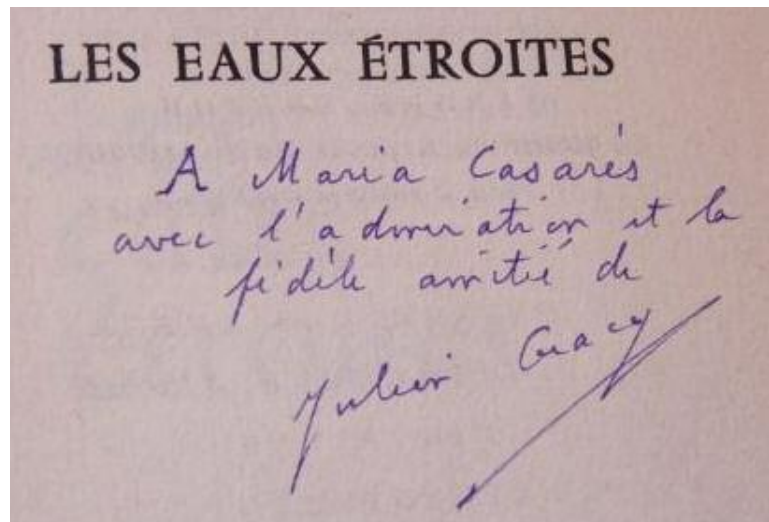 LES EAUX ÉTROITES
A Maria Casarès
avec l'admiration et la
fidèle amitié de
Julien Gracq